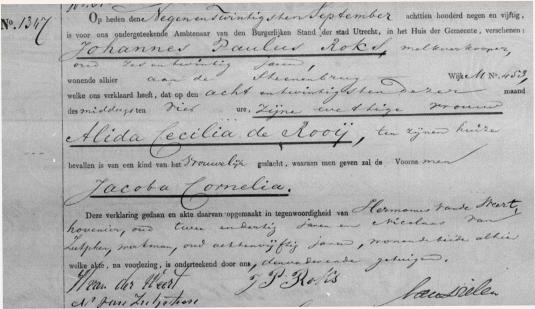 No. 1347
Op heden den Negen en twintigsten September achttien honderd negen en vijftig,
is voor ons ondergeteekende Ambtenaar van den Burgerlijken Stand der stad Utrecht, in het Huis der Gemeente, verschenen:
Johannes Paulus Roks, melkverkooper,
oud zes en twintig jaren,
wonende alhier aan de Steenenbrug Wijk M No. 453,
welke ons verklaard heeft, dat op den acht en twintigsten dezer maand
des middags ten vier ure, Zijne wettige vrouw
Alida Cecilia de Rooij, ten zijnen huize
bevallen is van een kind van het Vrouwelijk geslacht, waaraan men geven zal de Voornamen
Jacoba Cornelia.
Deze verklaring gedaan en akte daarvan opgemaakt in tegenwoordigheid van Hermanus van de Weert,
hovenier, oud twee en dertig jaren en Nicolaas van
Zutphen, werkman, oud acht en vijftig jaren, wonende beide alhier
welke akte, na voorlezing, is onderteekend door ons, den vader en de getuigen.
H van der Weert J P Roks
N van Zutphen